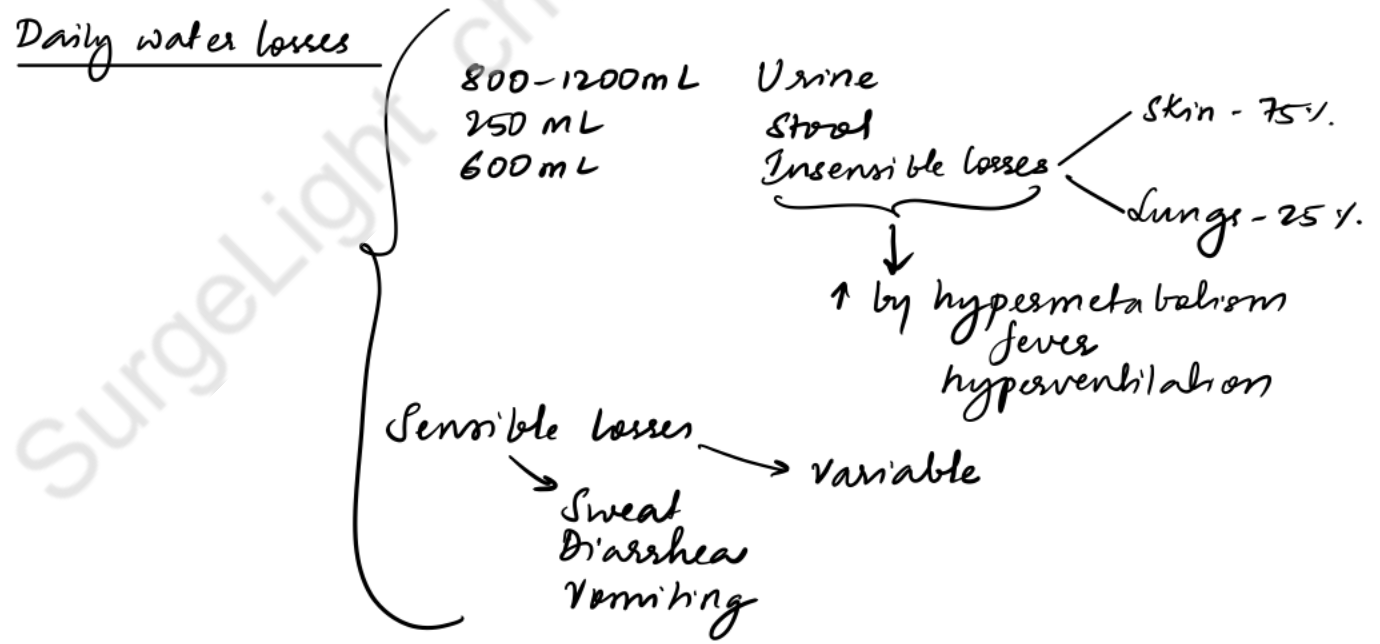 Daily water losses
800-1200mL Urine
250 mL Stool
600mL Insensible losses
Skin - 75%.
Lungs - 25%.
↑ by hypermetabolism
fever
hyperventilation
Sensible losses
variable
Sweat
Diarrhea
Vomiting
SurgeLight ch